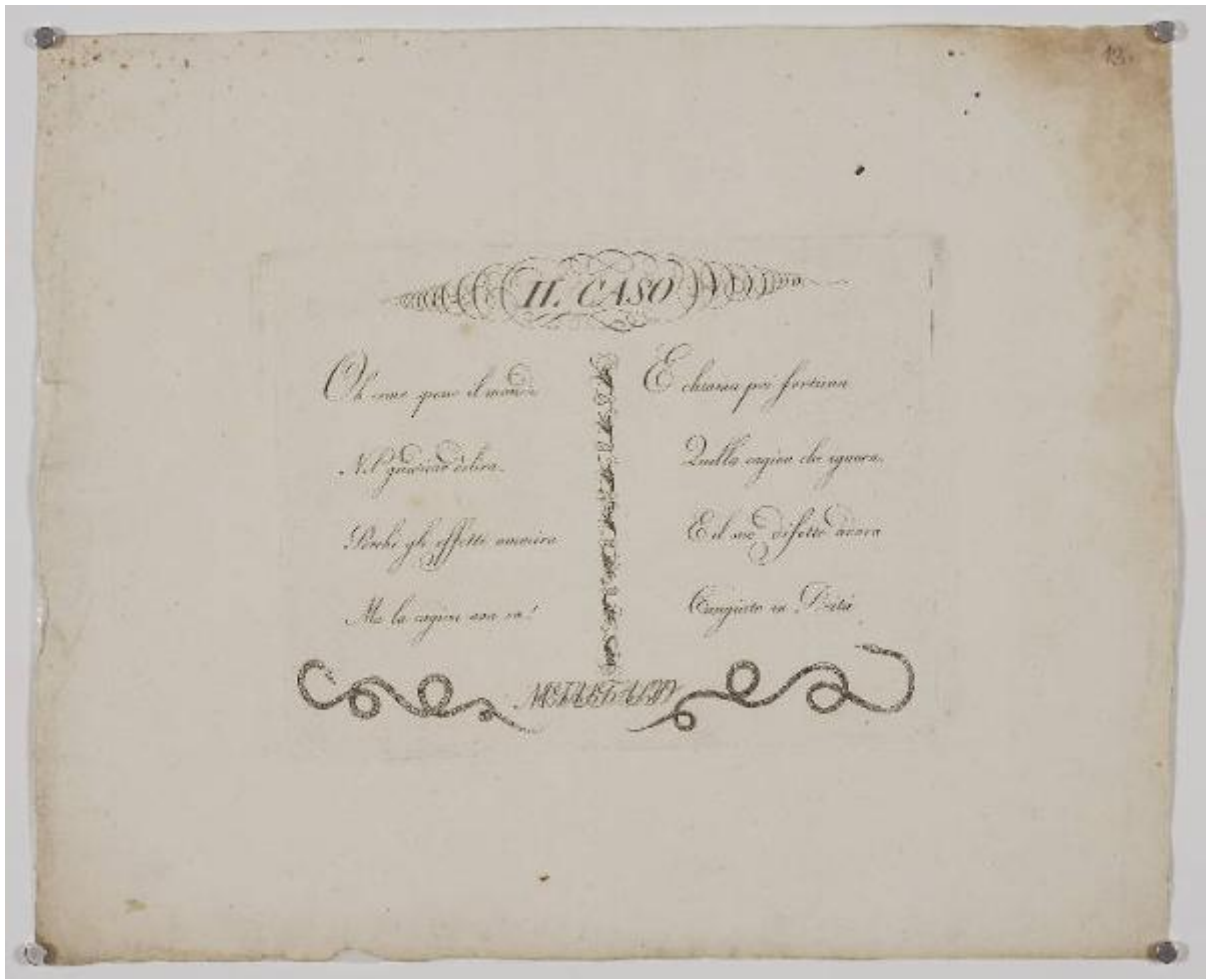 13.
IL CASO
Oh come spesso il mondo
Nel giudicar delira.
Perchè gli effetti ammira
Ma la cagion non sa!
E chiama poi fortuna
Quella cagion che ignora.
E il suo difetto adora
Cangiato in Deità
METASTASIO